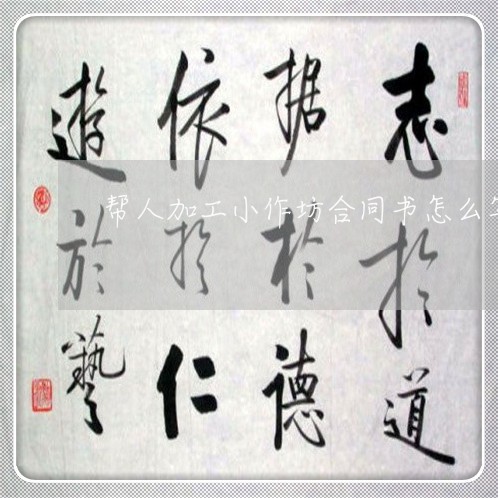 志於道
据於德
依於仁
遊於藝
帮人加工小作坊合同书怎么